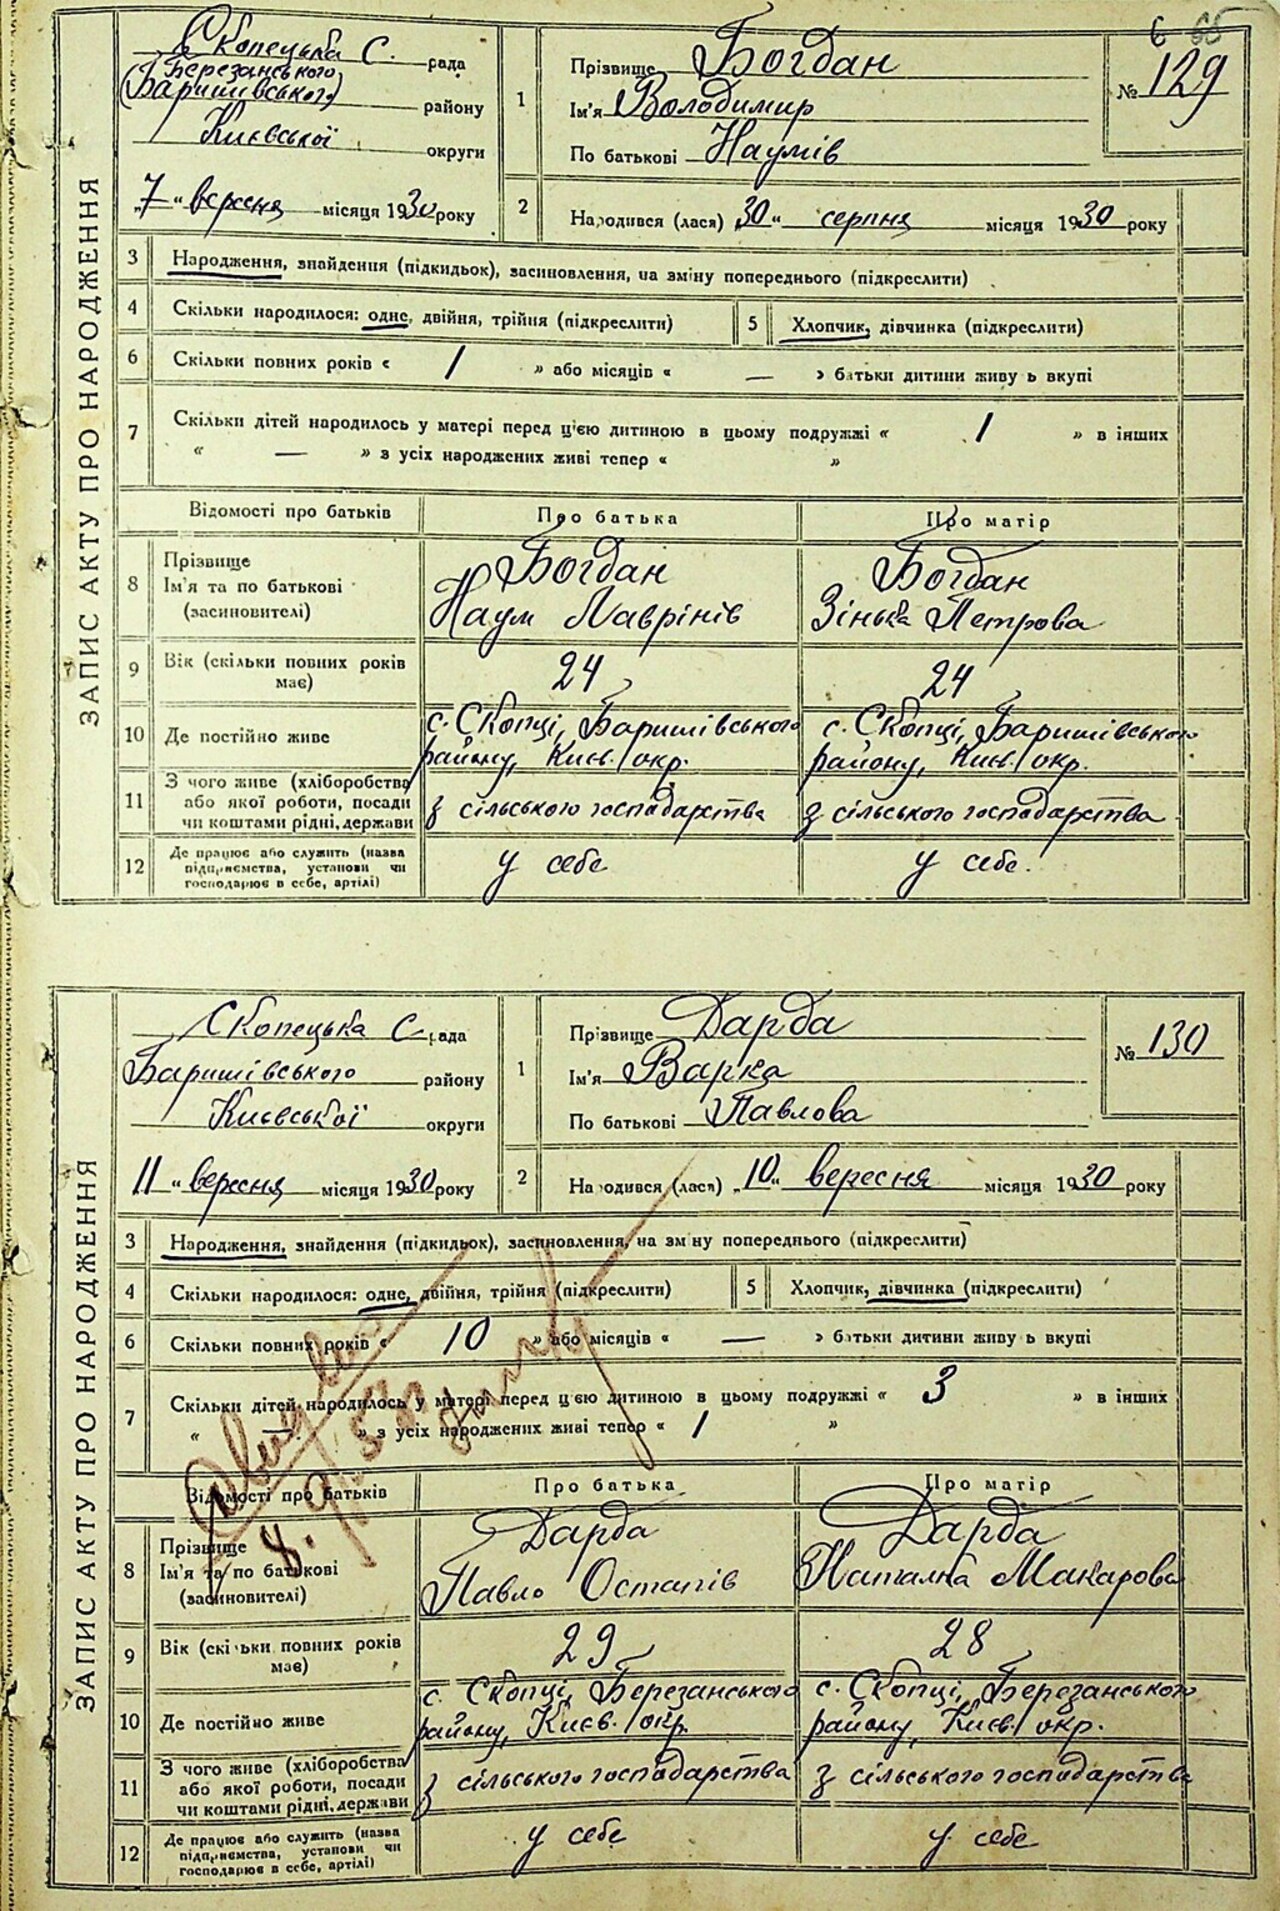 65
ЗАПИС АКТУ ПРО НАРОДЖЕННЯ
Скопецька С. рада
Березанського
(Баришівського) району
Київської округи
„7“ вересня місяця 1930 року
1 Прізвище Богдан
Ім'я Володимир
По батькові Наумів
№ 129
2 Народився (лася) „30“ серпня місяця 1930 року
3 Народження, знайдення (підкидьок), засиновлення, на зміну попереднього (підкреслити)
4 Скільки народилося: одне, двійня, трійня (підкреслити) 5 Хлопчик, дівчинка (підкреслити)
6 Скільки повних років « 1 » або місяців « — » батьки дитини живуть вкупі
7 Скільки дітей народилось у матері перед цією дитиною в цьому подружжі « 1 » в інших
« — » з усіх народжених живі тепер « »
Відомості про батьків Про батька Про матір
8 Прізвище Ім'я та по батькові (засиновителі) Богдан Богдан
Наум Лаврінів Зінька Петрова
9 Вік (скільки повних років має) 24 24
10 Де постійно живе с. Скопці, Баришівського с. Скопці, Баришівського
району, Київ. окр. району, Київ. окр.
11 З чого живе (хліборобства або якої роботи, посади чи коштами рідні, держави з сільського господарства з сільського господарства
12 Де працює або служить (назва підприємства, установи чи господарює в себе, артілі) у себе у себе.
ЗАПИС АКТУ ПРО НАРОДЖЕННЯ
Скопецька С. рада
Баришівського району
Київської округи
11 “ вересня місяця 1930 року
1 Прізвище Дарда
Ім'я Варка
По батькові Павлова
№ 130
2 Народився (лася) „10“ вересня місяця 1930 року
3 Народження, знайдення (підкидьок), засиновлення, на зміну попереднього (підкреслити)
4 Скільки народилося: одне, двійня, трійня (підкреслити) 5 Хлопчик, дівчинка (підкреслити)
6 Скільки повних років « 10 » або місяців « — » батьки дитини живуть вкупі
7 Скільки дітей народилось у матері перед цією дитиною в цьому подружжі « 3 » в інших
« — » з усіх народжених живі тепер « 1 »
Відомості про батьків Про батька Про матір
8 Прізвище Ім'я та по батькові (засиновителі) Дарда Дарда
Павло Остапів Наталка Макарова
9 Вік (скільки повних років має) 29 28
10 Де постійно живе с. Скопці, Березанського с. Скопці, Березанського
району, Київ. окр. району, Київ. окр.
11 З чого живе (хліборобства або якої роботи, посади чи коштами рідні, держави з сільського господарства з сільського господарства
12 Де працює або служить (назва підприємства, установи чи господарює в себе, артілі) у себе у себе